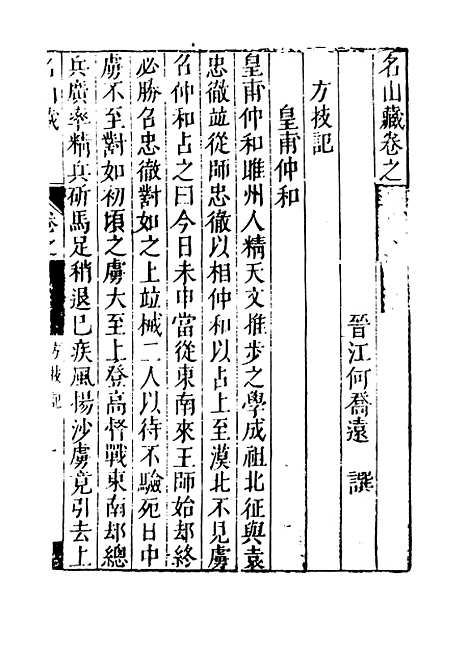 名山藏卷之
晉江何喬遠 譔
方技記
皇甫仲和
皇甫仲和睢州人精天文推步之學成祖北征與袁
忠徹竝從師忠徹以相仲和以占上至漠北不見虜
召仲和占之曰今日未申當從東南來王師始却終
必勝召忠徹對如之上竝械二人以待不驗死日中
虜不至對如初頃之虜大至上登高督戰東南却總
兵廣率精兵斫馬足稍退已疾風揚沙虜竟引去上
名山藏 卷之 方技記